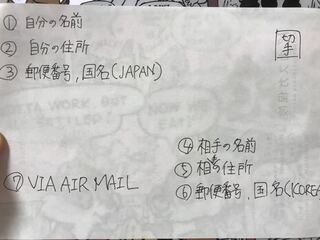 ① 自分の名前
② 自分の住所
③ 郵便番号,国名(JAPAN)
切手
④ 相手の名前
⑤ 相手の住所
⑥ 郵便番号,国名(KOREA
⑦ VIA AIR MAIL